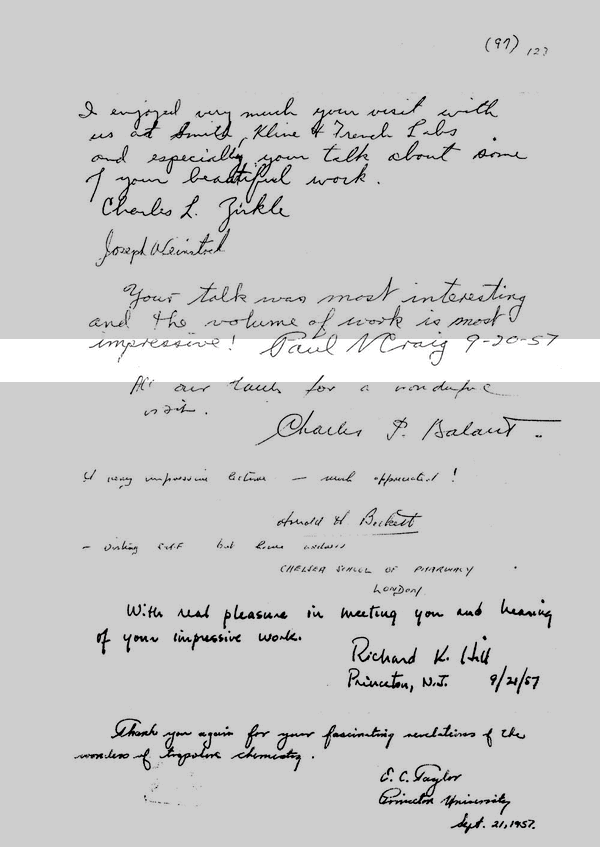 (97) 123
I enjoyed very much your visit with
us at Smith, Kline & French Labs
and especially your talk about some
of your beautiful work.
Charles L. Zirkle
Joseph Weinstock
Your talk was most interesting
and the volume of work is most
impressive! Paul N Craig 9-20-57
All our thanks for a wonderful
visit.
Charles P. Balant
A very impressive lecture — much appreciated!
Arnold H Beckett
- visiting SKF but home address
CHELSEA SCHOOL OF PHARMACY
LONDON
With real pleasure in meeting you and hearing
of your impressive work.
Richard K. Hill
Princeton, N.J. 9/21/57
Thank you again for your fascinating revelations of the
wonders of tropolone chemistry.
E. C. Taylor
Princeton University
Sept. 21, 1957.